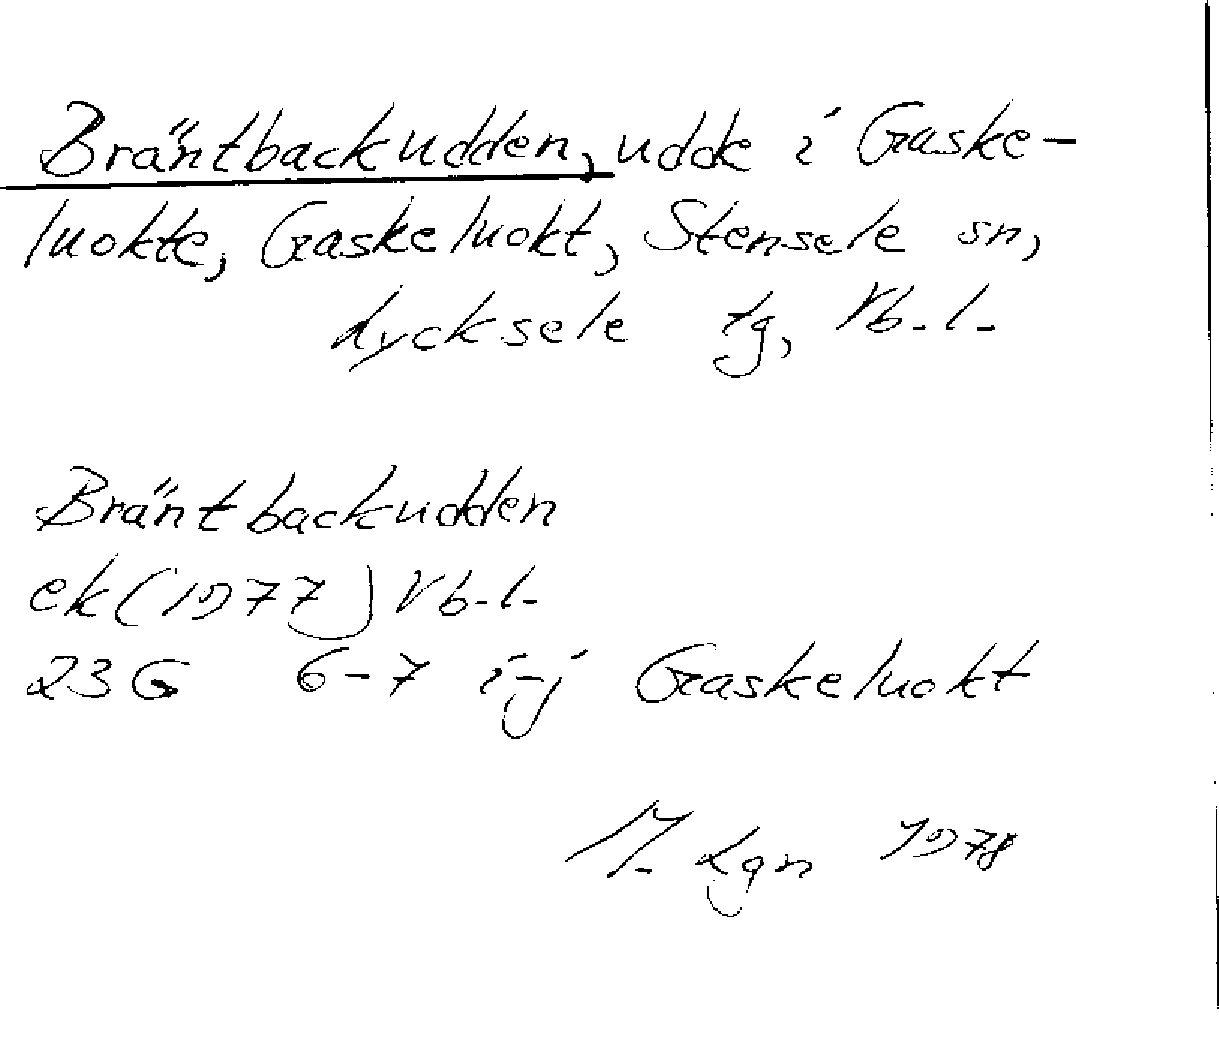 Bräntbackudden, udde i Gaske-
luokte, Gaskeluokt, Stensele sn,
Lycksele tg, Vb. l.
Bräntbackudden
ek (1977) Vb. l.
23 G 6-7 i-j Gaskeluokt
M. Lgn 1978